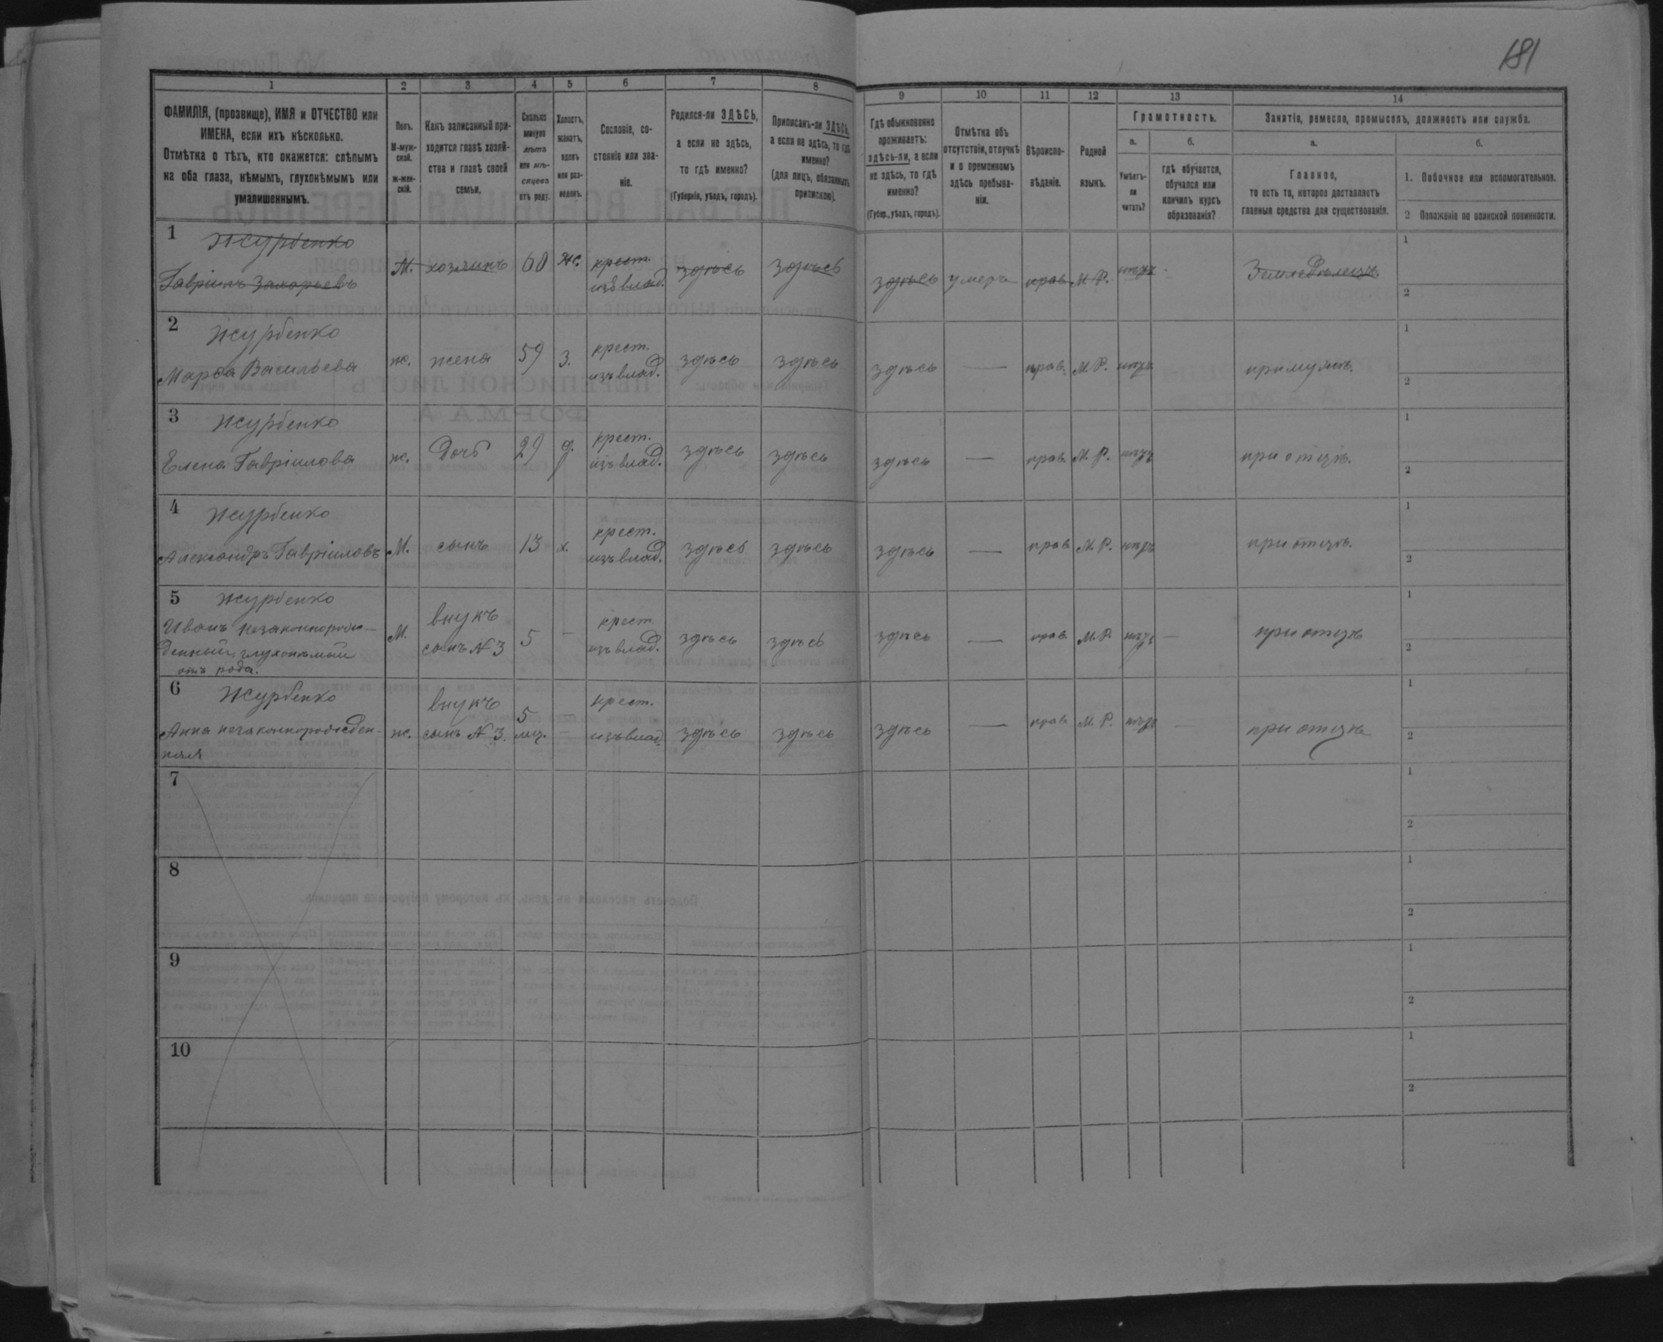 181
1
2
3
4
5
6
7
8
9
10
11
12
13
14
ФАМИЛІЯ, (прозвище), ИМЯ и ОТЧЕСТВО или
ИМЕНА, если ихъ нѣсколько.
Отмѣтка о тѣхъ, кто окажется: слѣпымъ
на оба глаза, нѣмымъ, глухонѣмымъ или
умалишеннымъ.
Полъ.
М-муж-
ской.
ж-жен-
скій.
Какъ записанный при-
ходится главѣ хозяй-
ства и главѣ своей
семьи.
Сколько
минуло
лѣтъ
или мѣ-
сяцевъ
отъ роду.
Холостъ,
женатъ,
вдовъ
или раз-
веденъ.
Сословіе, со-
стояніе или зва-
ніе.
Родился-ли ЗДѢСЬ,
а если не здѣсь,
то гдѣ именно?
(Губернія, уѣздъ, городъ).
Приписанъ-ли ЗДѢСЬ,
а если не здѣсь, то гдѣ
именно?
(для лицъ, обязанныхъ
припискою).
Гдѣ обыкновенно
проживаетъ:
здѣсь-ли, а если
не здѣсь, то гдѣ
именно?
(Губер., уѣздъ, городъ).
Отмѣтка объ
отсутствіи, отлучкѣ
и о временномъ
здѣсь пребыва-
ніи.
Вѣроиспо-
вѣданіе.
Родной
языкъ.
Грамотность.
а.
Умѣетъ-
ли
читать?
б.
гдѣ обучается,
обучался или
кончилъ курсъ
образованія?
Занятіе, ремесло, промыселъ, должность или служба.
а.
Главное,
то есть то, которое доставляетъ
главныя средства для существованія.
б.
1. Побочное или вспомогательное.
2 Положеніе по воинской повинности.
1 Журбенко
Гавріилъ Захарьевъ
М. хозяинъ 60 ж. крест. изъ влад. здѣсь здѣсь здѣсь умеръ прав. М. Р. нѣтъ Земледѣлецъ
1
2
2 Журбенко
Марѳа Васильева
ж. жена 59 з. крест. изъ влад. здѣсь здѣсь здѣсь — прав. М. Р. нѣтъ при мужѣ.
1
2
3 Журбенко
Елена Гавріилова
ж. Дочь 29 д. крест. изъ влад. здѣсь здѣсь здѣсь — прав. М. Р. нѣтъ при отцѣ.
1
2
4 Журбенко
Александръ Гавріиловъ
М. сынъ 13 х. крест. изъ влад. здѣсь здѣсь здѣсь — прав М. Р. нѣтъ при отцѣ.
1
2
5 Журбенко
Иванъ незаконнорож-
денный, глухонѣмой
отъ рода.
М. внукъ сынъ № 3 5 — крест. изъ влад. здѣсь здѣсь здѣсь — прав М. Р. нѣтъ — при отцѣ
1
2
6 Журбенко
Анна незаконнорожден-
ная
ж. внукъ сынъ № 3. 5 мц. — крест. изъ влад. здѣсь здѣсь здѣсь — прав М. Р. нѣтъ — при отцѣ
1
2
7
1
2
8
1
2
9
1
2
10
1
2